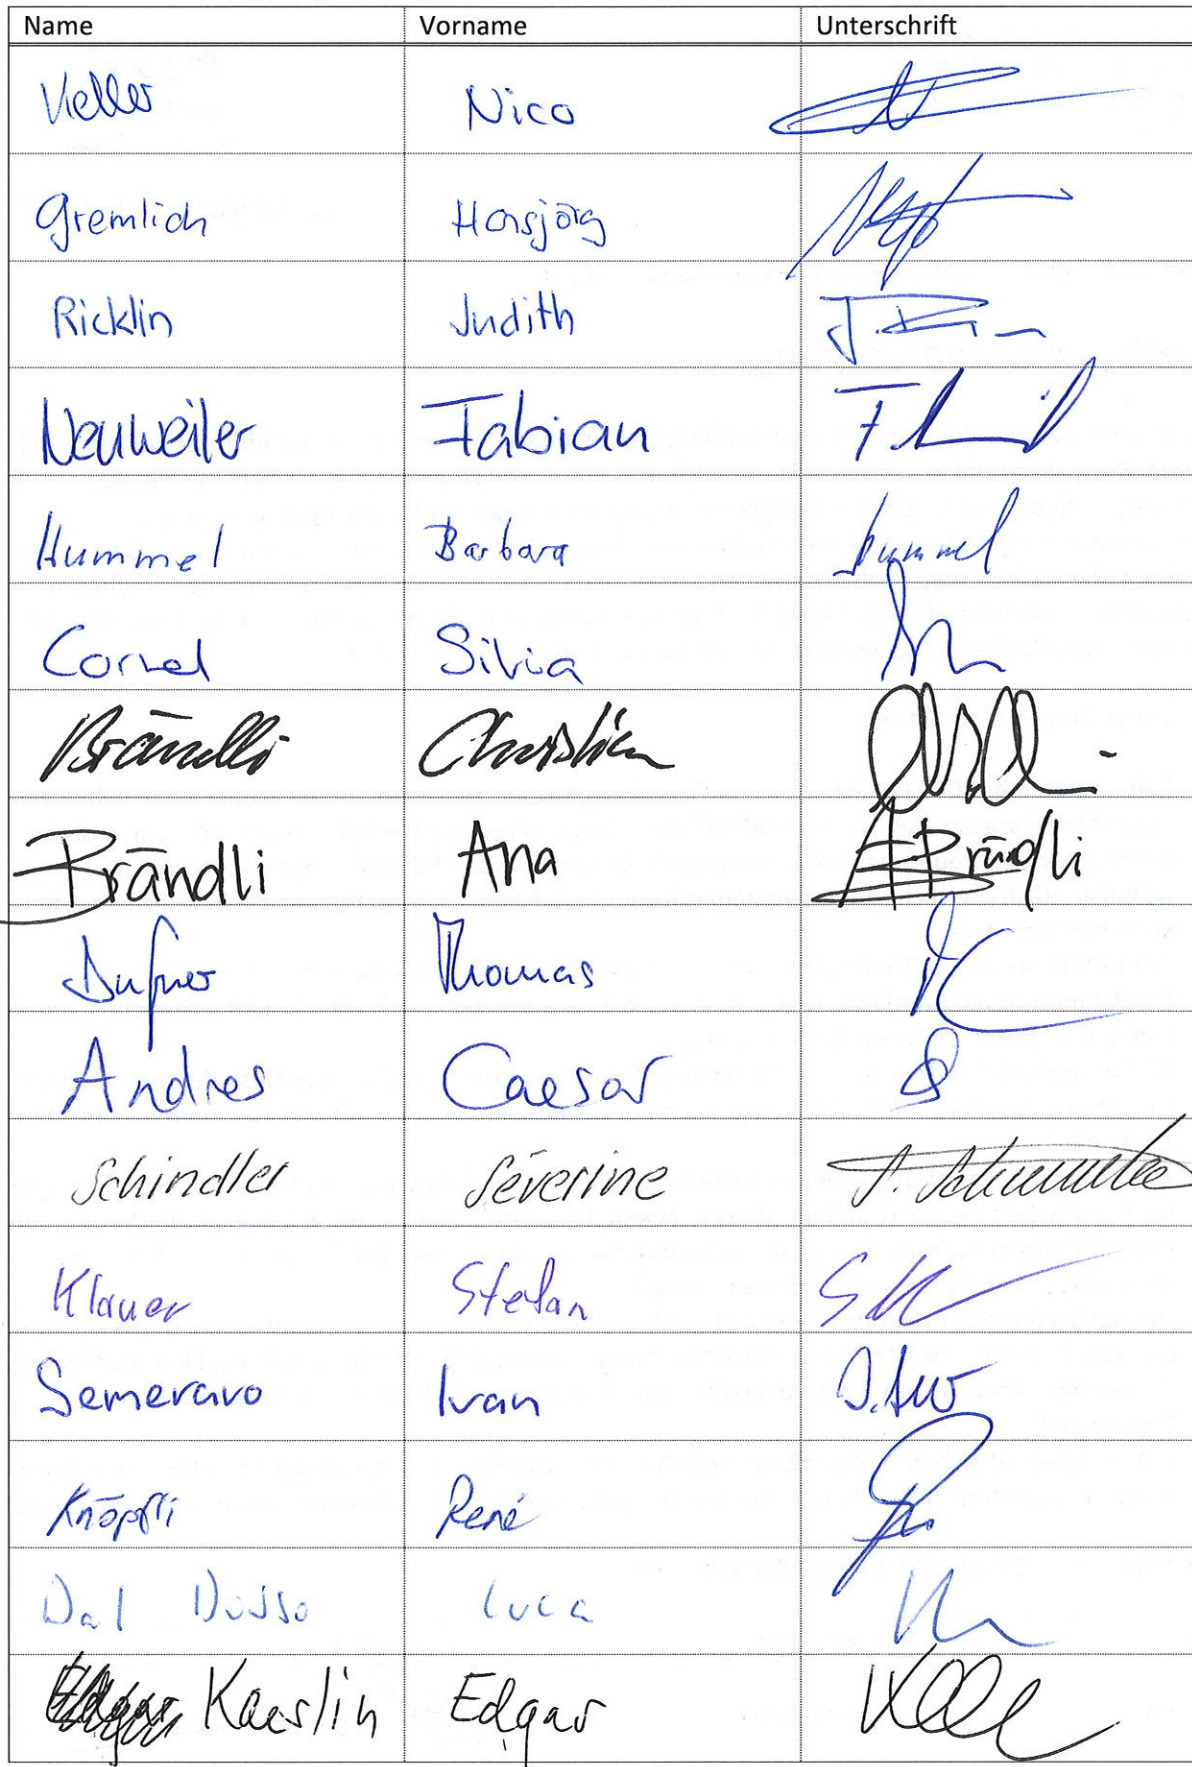 Name Vorname Unterschrift
Keller Nico
Gremlich Hansjörg
Ricklin Judith J.
Neuweiler Fabian F.
Hummel Barbara Hummel
Cornel Silvia
Brändli Christian
Brändli Ana A Brändli
Dufner Thomas
Andres Caesar
Schindler Séverine S. Schindler
Klauer Stefan
Semeraro Ivan
Knöpfli René
Dal Dosso Luca
Kaeslin Edgar